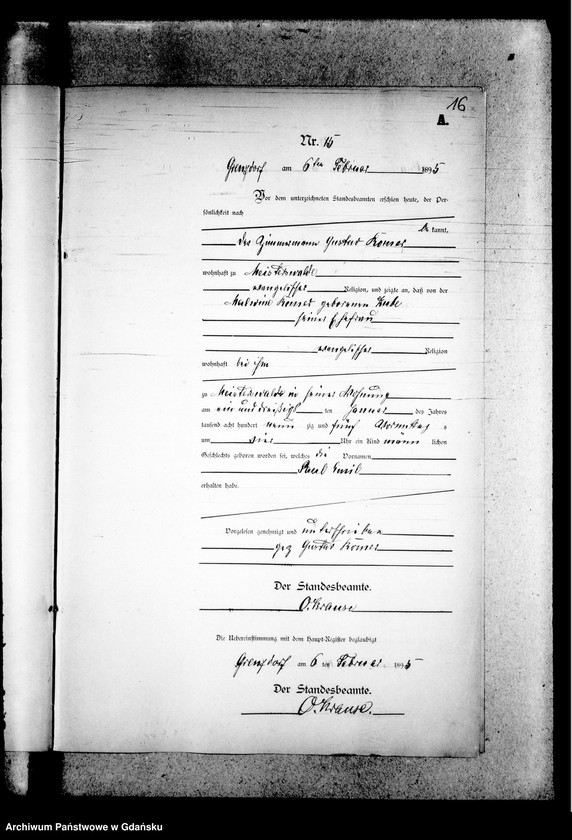 16
A.
Nr. 15
Grenzdorf am 6ten Februar 1895
Vor dem unterzeichneten Standesbeamten erschien heute, der Per-
sönlichkeit nach
be kannt,
der Zimmermann Gustav
wohnhaft zu Meisterswalde
evangelischer Religion, und zeigte an, daß von der
geborenen
seiner Ehefrau
evangelischer Religion
wohnhaft bei ihm
zu Meisterswalde in seiner Wohnung
am ein und dreißigsten Januar des Jahres
tausend acht hundert neun zig und fünf Vormittags
um vier Uhr ein Kind männ lichen
Geschlechts geboren worden sei, welches die Vornamen
Paul Emil
erhalten habe.
Vorgelesen, genehmigt und unterschrieben
gez Gustav
Der Standesbeamte.
O. Krause
Die Uebereinstimmung mit dem Haupt-Register beglaubigt
Grenzdorf am 6 ten Februar 1895
Der Standesbeamte.
O. Krause.
Archiwum Państwowe w Gdańsku